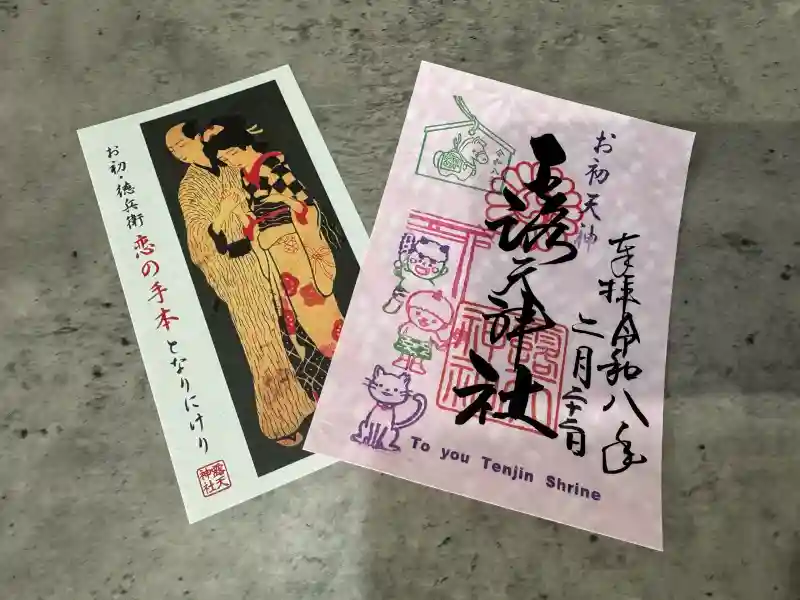 お初・徳兵衛
恋の手本
となりにけり
露天
神社
お初天神
奉拝 令和八年
二月二十二日
露天神社
露天
神社
To you Tenjin Shrine